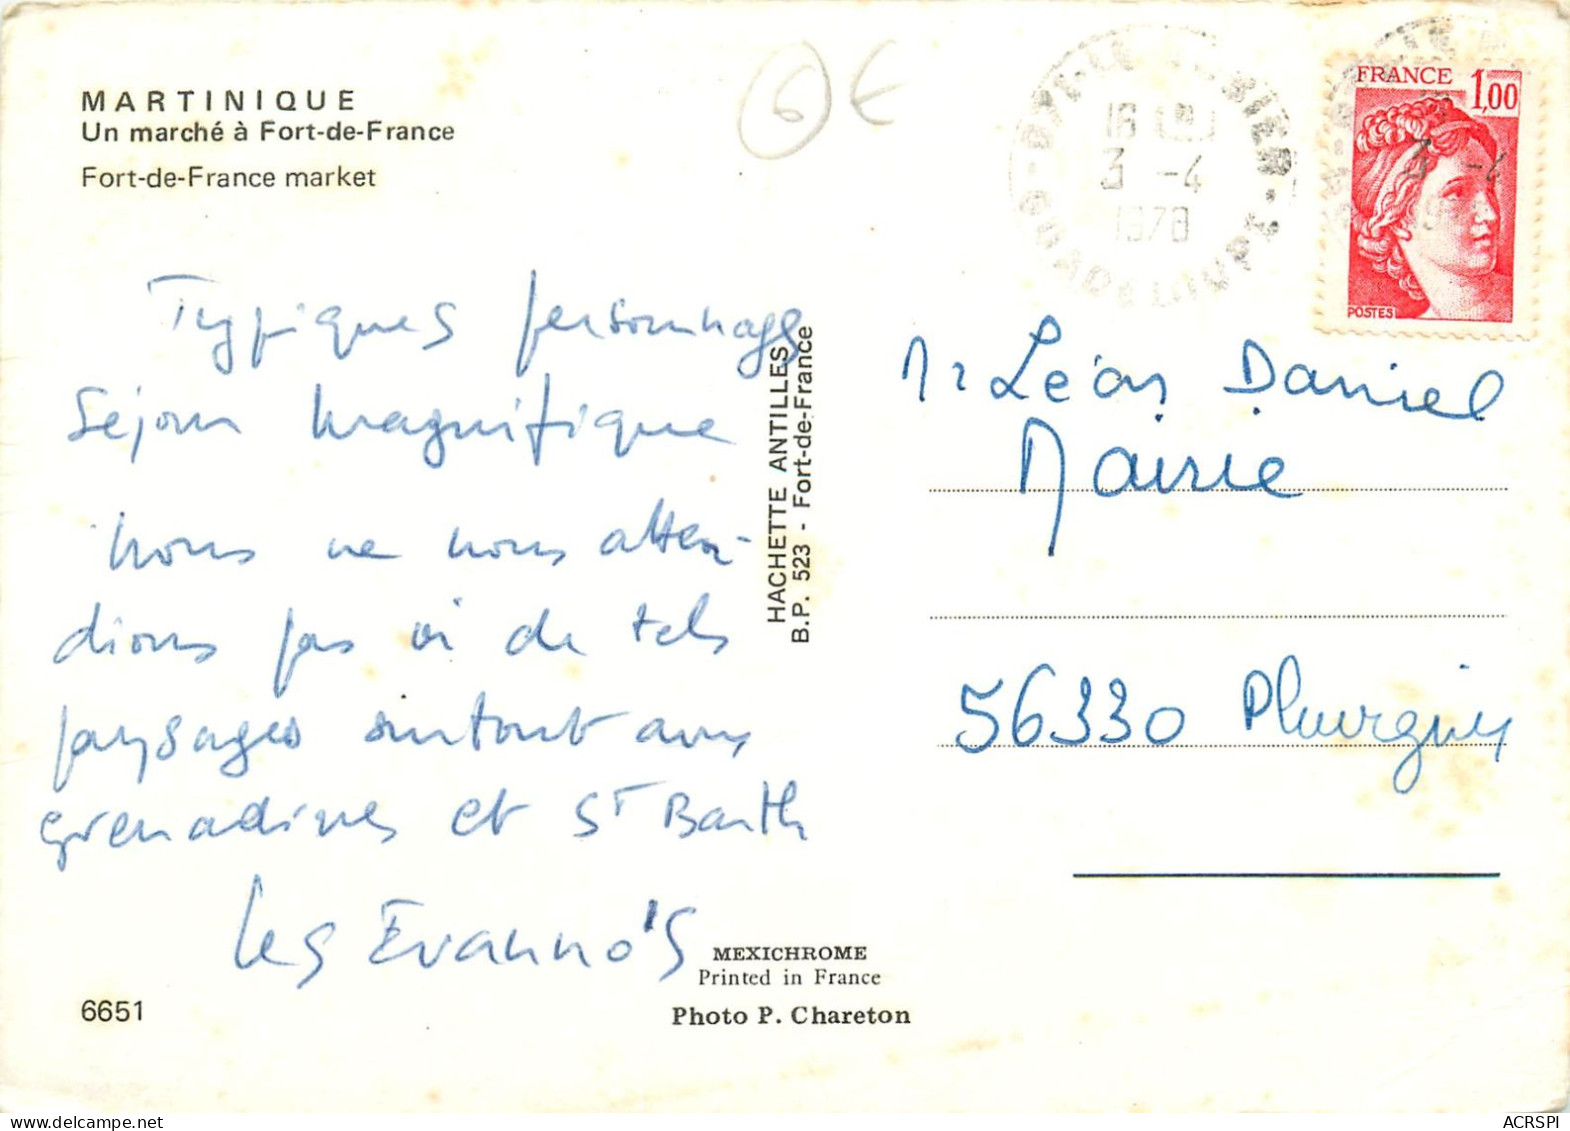 MARTINIQUE
Un marché à Fort-de-France
Fort-de-France market
6 €
18 H
3 -4
1978
GUADELOUPE
FRANCE 1,00
3 -4
POSTES
Typiques personnages
Séjour magnifique
nous ne nous atten-
dions pas à de tels
paysages surtout aux
grenadines et St Barth
Les Evanno's
HACHETTE ANTILLES
B.P. 523 - Fort-de-France
Mr Léon Daniel
Mairie
56330 Pluvigner
MEXICHROME
Printed in France
Photo P. Chareton
6651
ACRSPI